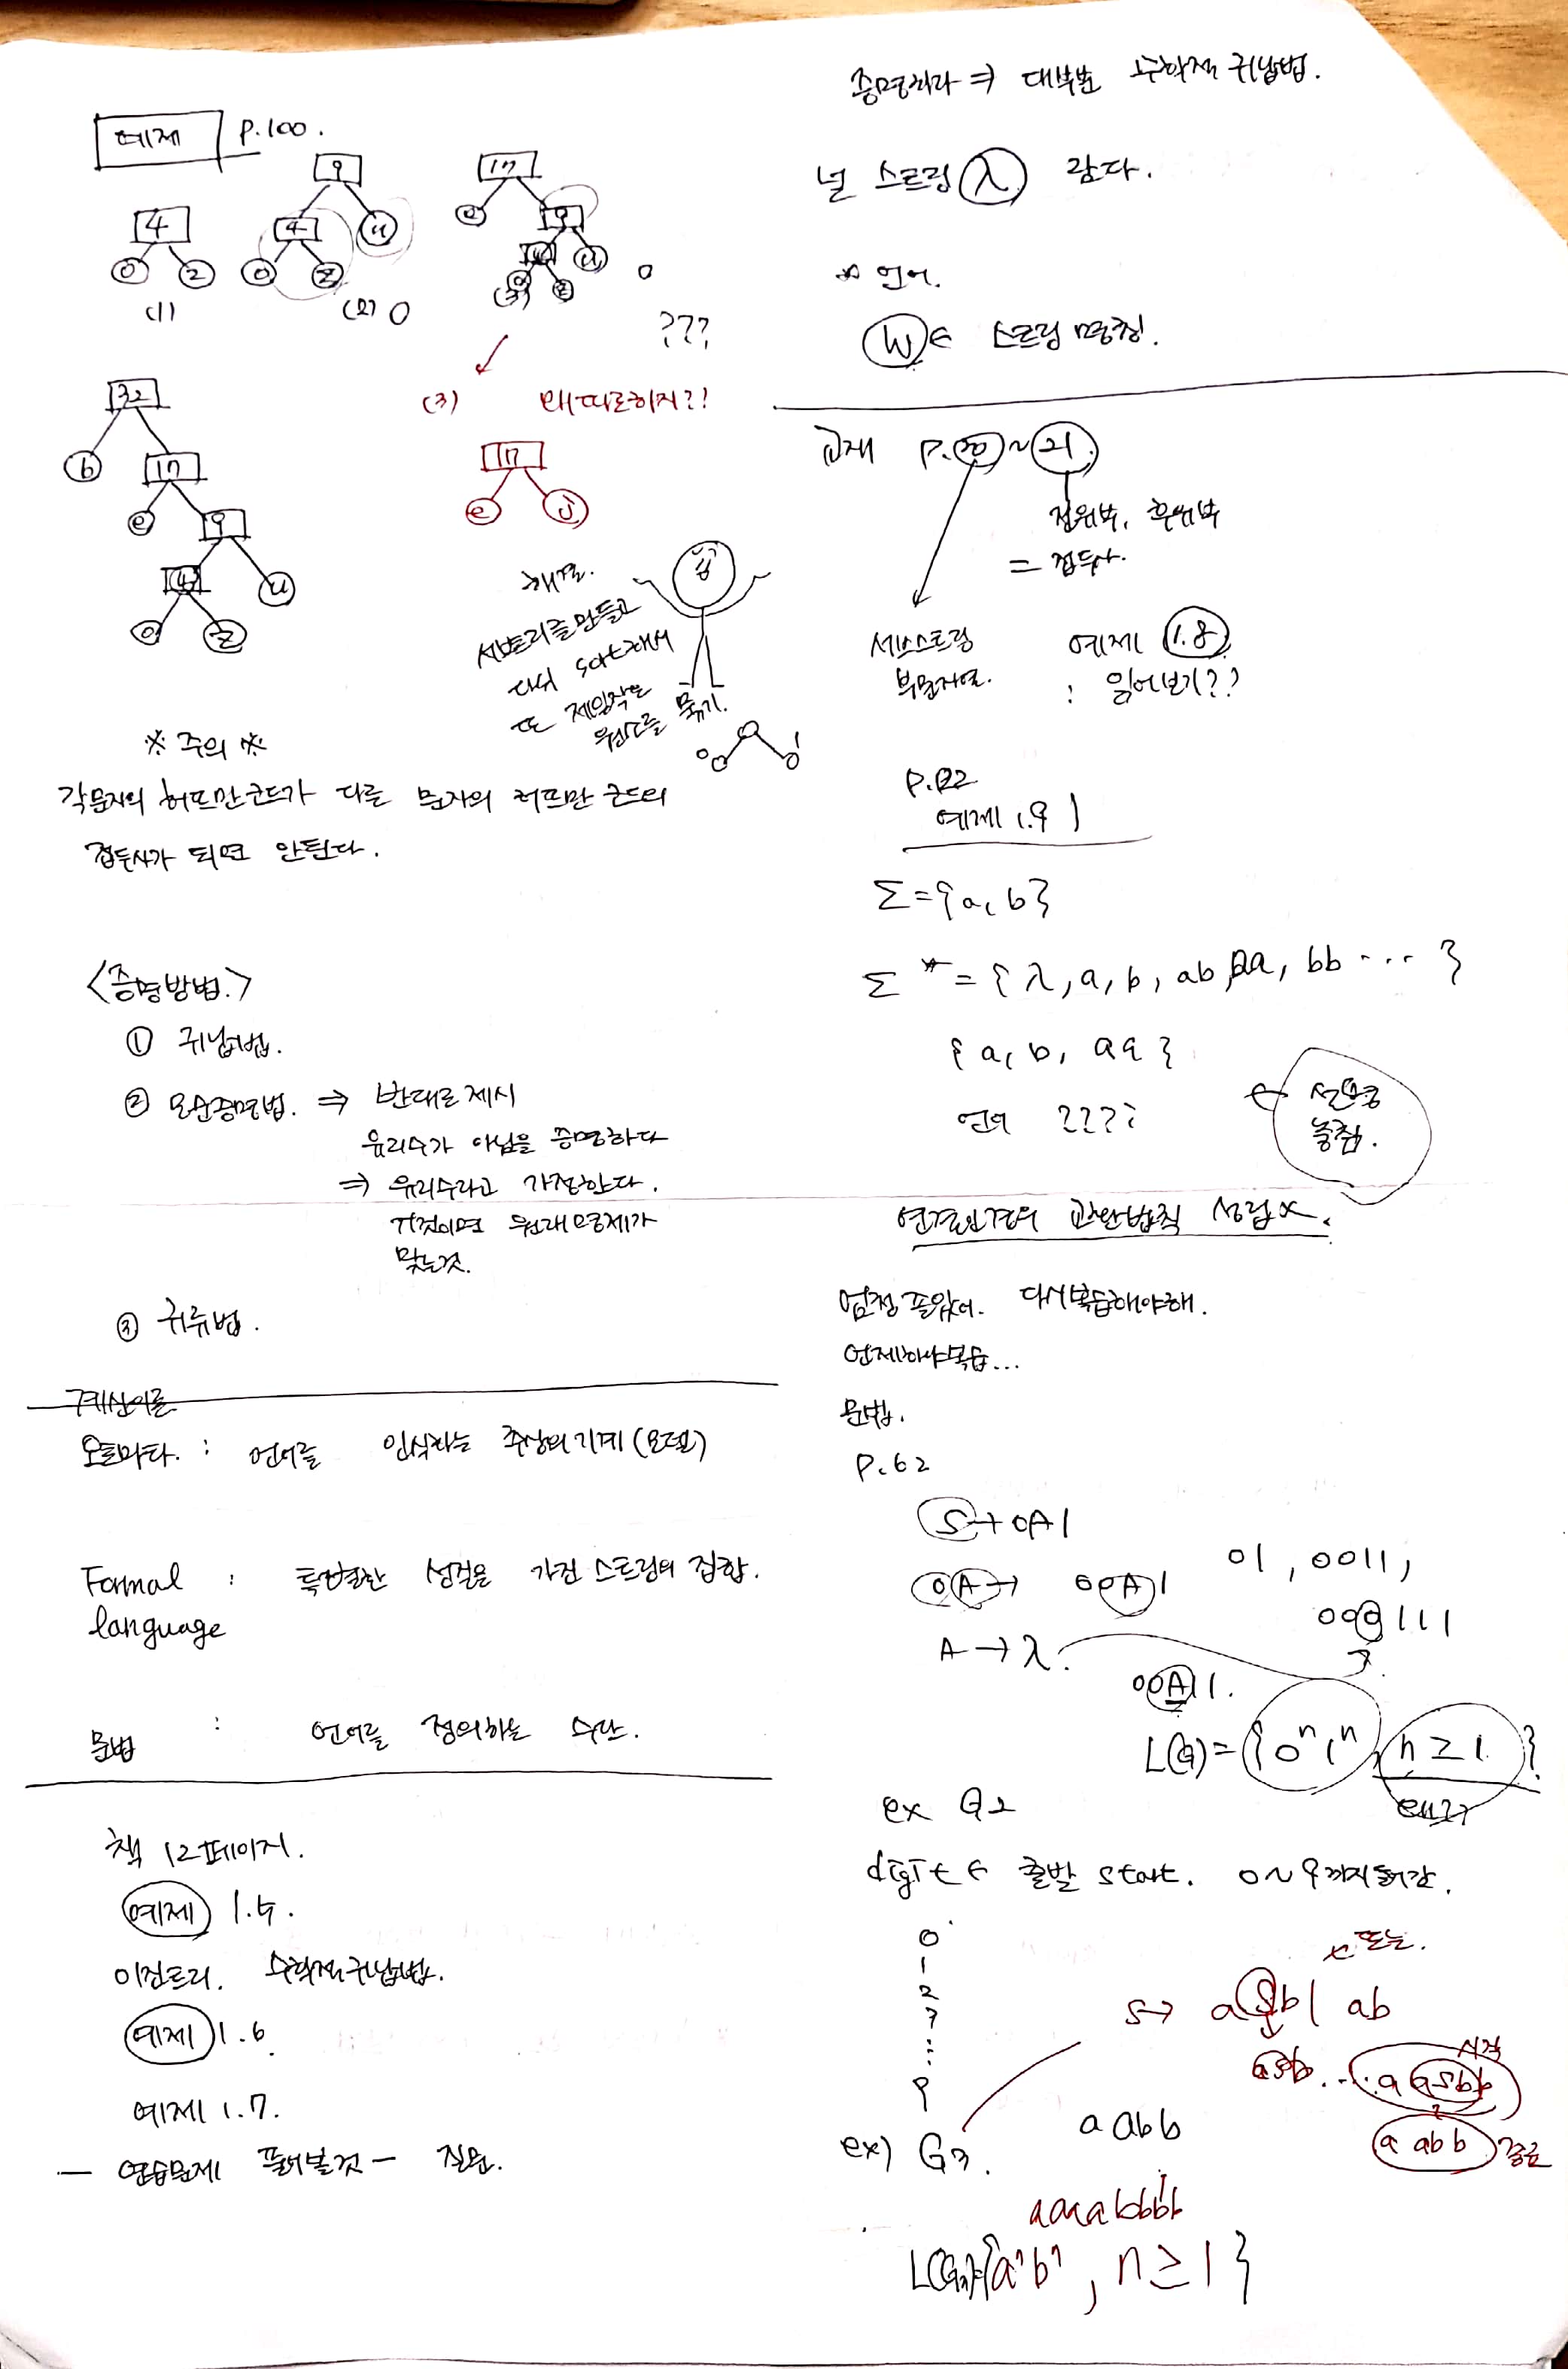 예제 P.100.
9
17
4
4
u
e
9
0
2
0
z
4
u
(1)
(2) 0
(3)
0
z
0
???
32
b
17
e
9
4
u
0
z
(3) 왜따로하지?!
17
e
j
해결.
서브트리를 만들고
다시 sort해서
또 제일작은
원소를 묶기.
※ 주의 ※
각문자의 허프만코드가 다른 문자의 허프만 코드의
접두사가 되면 안된다.
<증명방법.>
① 귀납법.
② 모순증명법. ⇒ 반대로 제시
유리수가 아님을 증명하다
⇒ 유리수라고 가정한다.
거짓이면 원래명제가
맞는것.
③ 귀류법.
계산이론
오토마타. : 언어를 인식하는 추상의기계(모델)
Formal : 특별한 성질을 가진 스트링의 집합.
language
문법 : 언어를 정의하는 수단.
책 12페이지.
예제 1.5.
이진트리. 수학적귀납법.
예제 1.6.
예제 1.7.
— 연습문제 풀어볼것 — 질문.
증명하라 ⇒ 대부분 수학적 귀납법.
널 스트링 λ 람다.
* 언어.
W ← 스트링 명칭.
교재 P.20 ~ 21.
접위부, 후위부
= 접두사.
서브스트링 예제 1.8
부문자열. : 읽어보기??
P.22
예제 1.9)
Σ={a, b}
Σ* = {λ, a, b, ab, aa, bb ··· }
{a, b, aa}
언어 ????
놓침.
연결연결의 교환법칙 성립x.
엄청 졸았어. 다시복습해야해.
언제하냐복습...
문법.
P.62
S→0A1
0A→ 00A1
01, 0011,
000111
A→λ.
00A11.
L(G)={0ⁿ1ⁿ, n≥1}
ex G2
digit ← 출발 start. 0~9까지들어감.
0
1
2
3
⋮
9
또는.
S→ aSb| ab
aSb.... aaSbb
시작
aabb
종료
ex) G3.
aabb
aaaabbbb
L(G3)={aⁿbⁿ, n≥1}